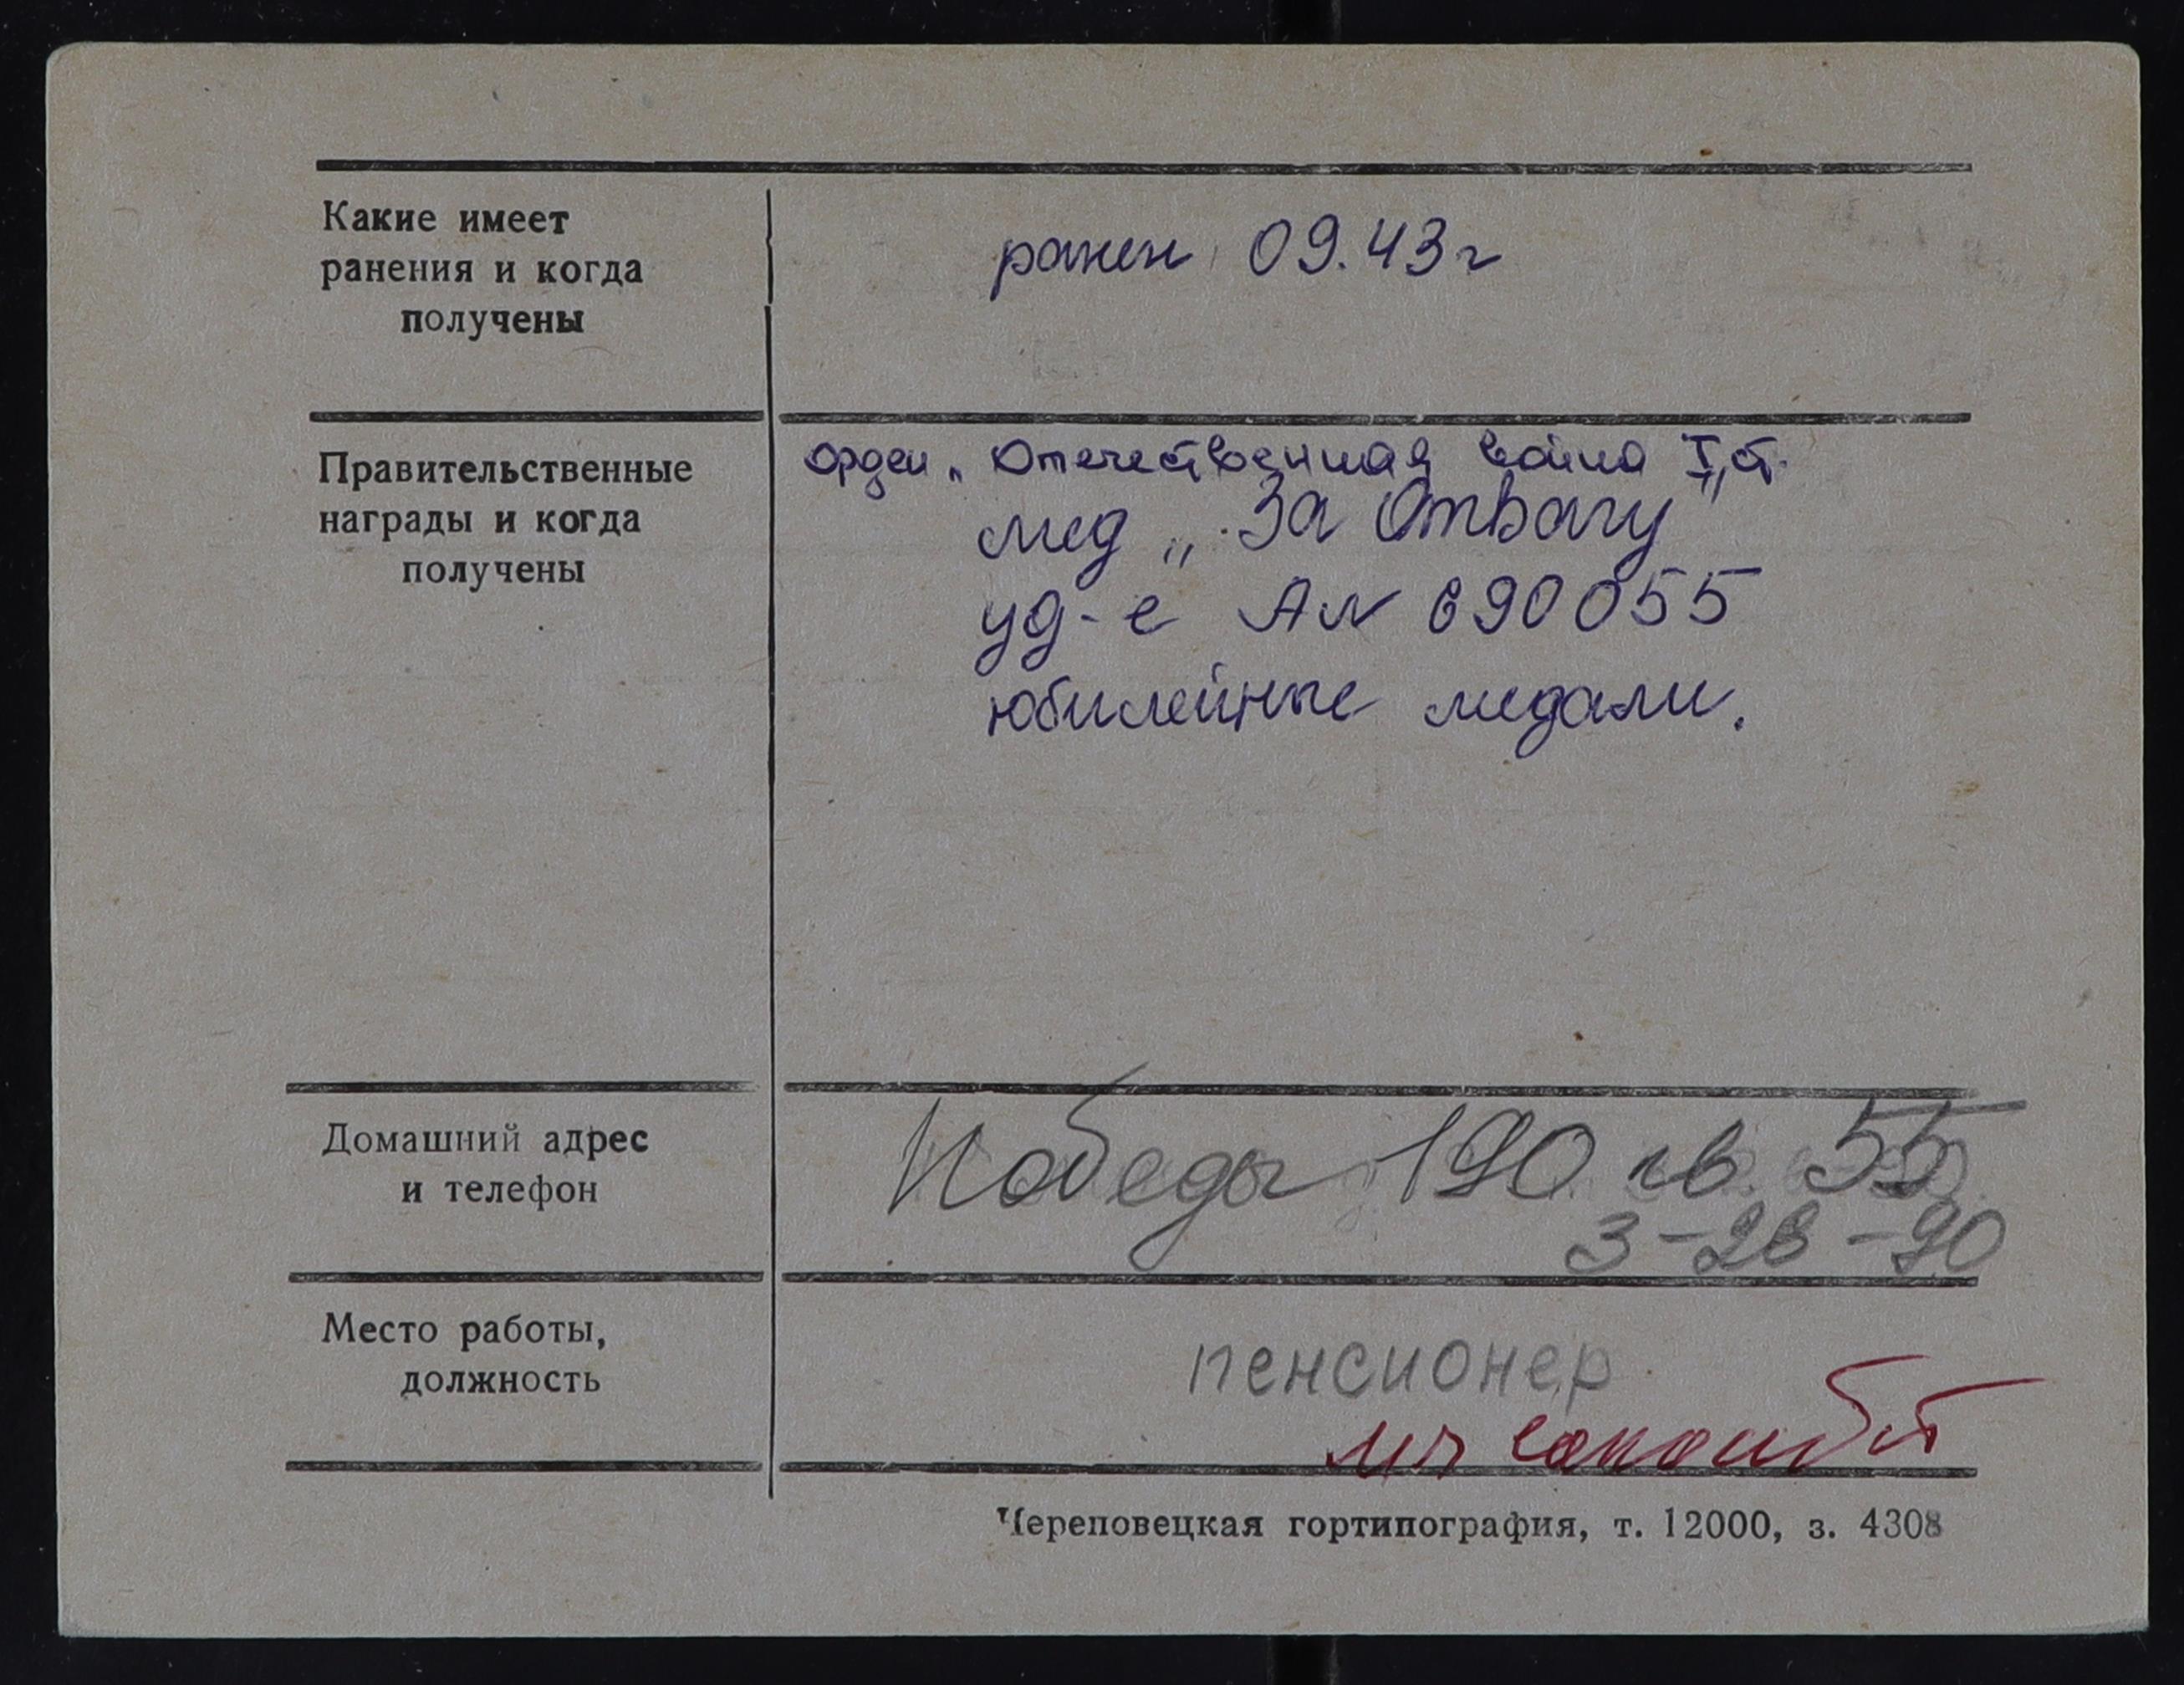 Какие имеет
ранения и когда
получены
ранен 09.43г
Правительственные
награды и когда
получены
орден „Отечественная война I ст.
мед „За Отвагу"
уд-е А № 690055
юбилейные медали.
Домашний адрес
и телефон
Победы 190 кв 55
3-28-90
Место работы,
должность
пенсионер
Череповецкая гортипография, т. 12000, з. 4308